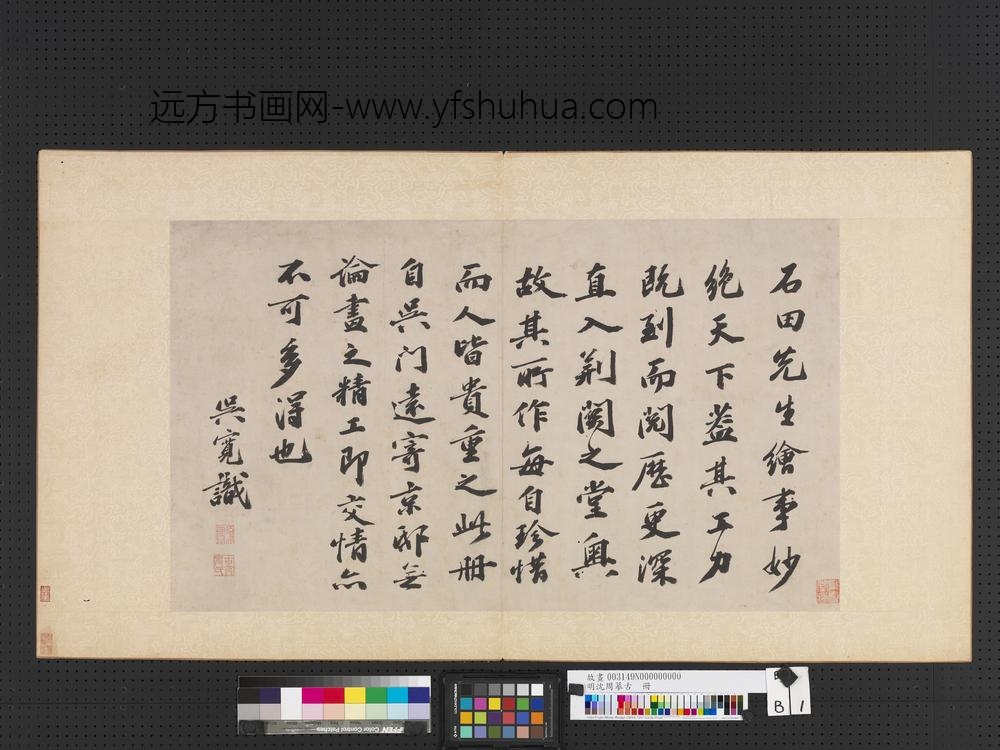 远方书画网-www.yfshuhua.com
石田先生繪事妙
絶天下葢其工力
既到而閱歷更深
直入荆關之堂奧
故其所作每自珍惜
而人皆貴重之此册
自吳门遠寄京邸無
論畫之精工即交情亦
不可多得也
吳寬識
故畫 003149N000000000
明沈周摹古 冊
B 1